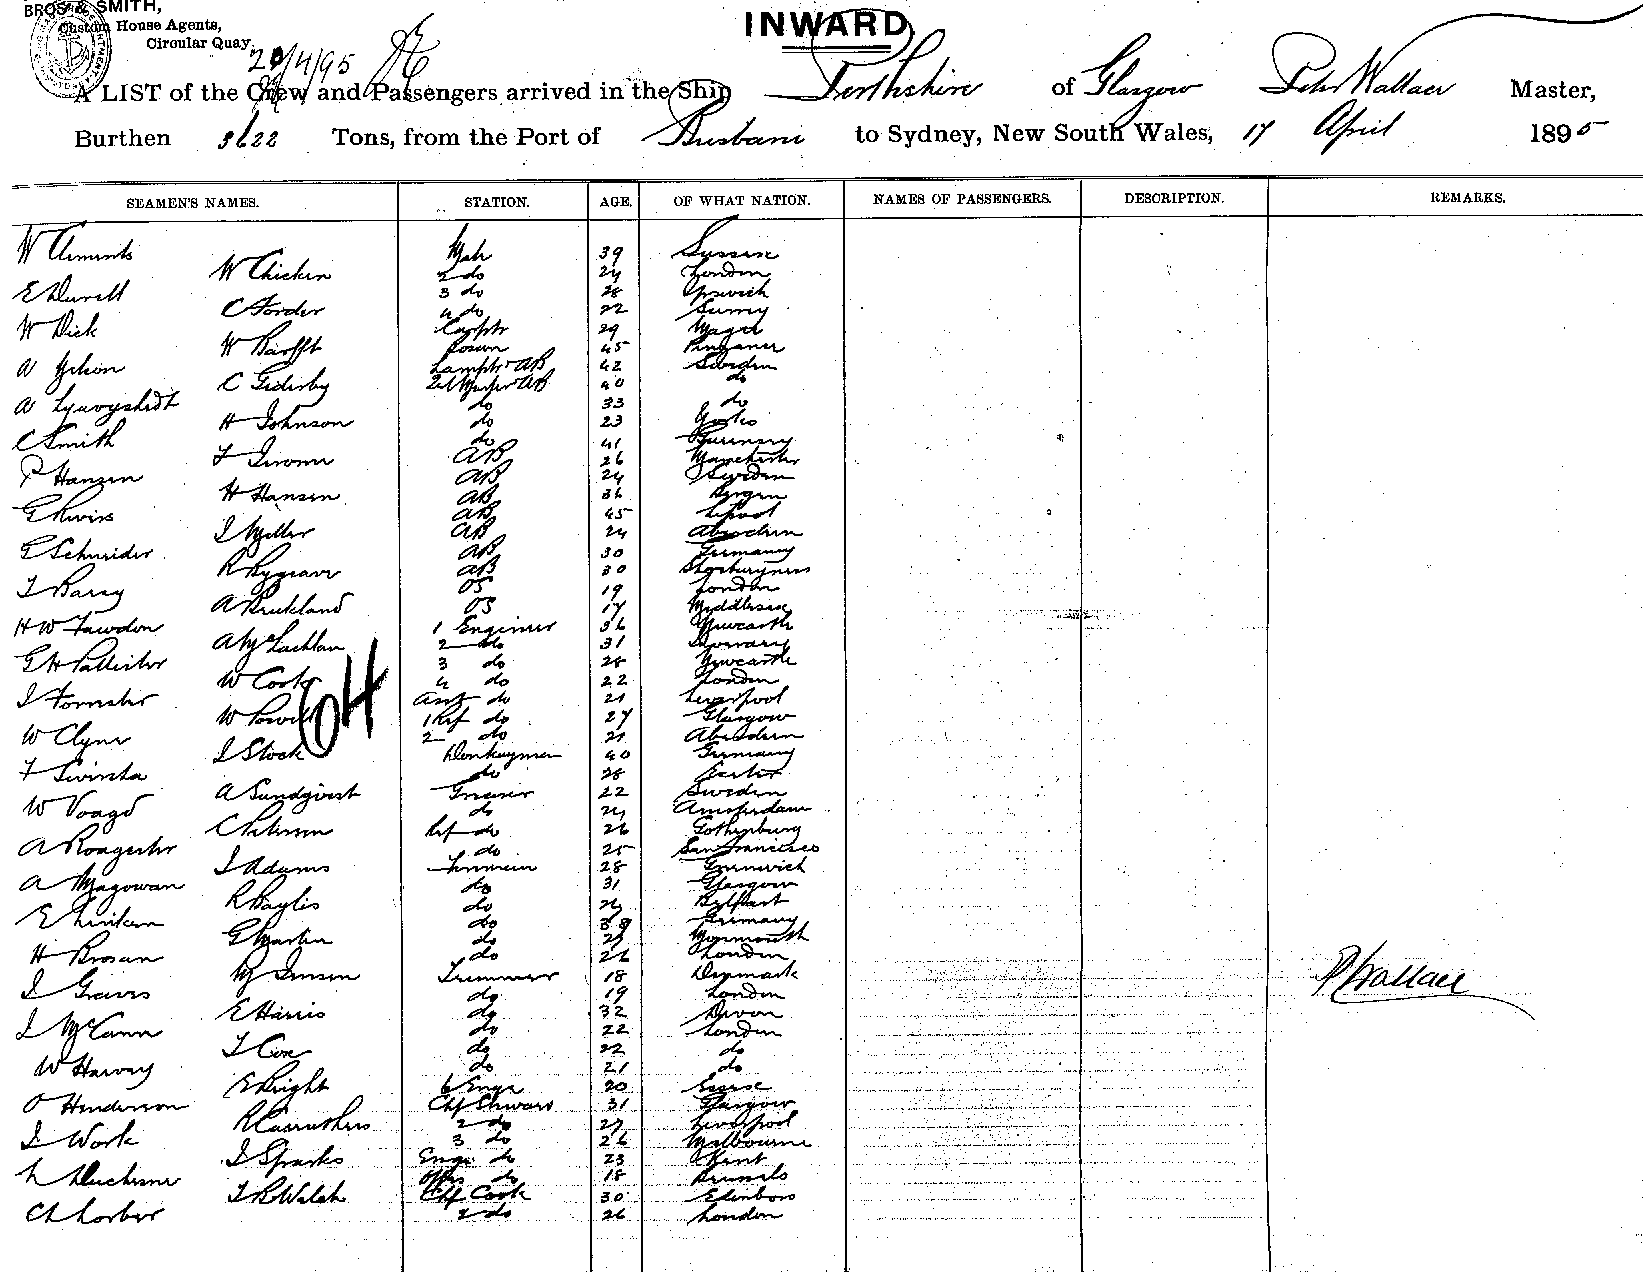 BROS & SMITH,
Custom House Agents,
Circular Quay
20/4/95
INWARD
A LIST of the Crew and Passengers arrived in the Ship Perthshire of Glasgow Peter Wallace Master,
Burthen 3622 Tons, from the Port of Brisbane to Sydney, New South Wales, 17 April 1895
SEAMEN'S NAMES. STATION. AGE. OF WHAT NATION. NAMES OF PASSENGERS. DESCRIPTION. REMARKS.
W Clements Mate 39 Sussex
W Chicken 2 do 24 London
E Durell 3 do 28 Ipswich
C Forder 4 do 22 Surrey
W Dick Carptr 29
W Barfft Bosun 45
A Lamptr AB 42 Sweden
C AB 40 do
A do 33 do
H Johnson do 23
C Smith do 41 Guernsey
F AB 26 Manchester
P Hansen AB 24 Sweden
H Hansen AB 36 Bergen
G AB 45 Lpool
J Miller AB 24 Aberdeen
G Schneider AB 30 Germany
R AB 30 Shoeburyness
T Barry OS 19 London
A Buckland OS 17 Middlesex
H W Fawdon 1 Engineer 36 Newcastle
A McLachlan 2 do 31
G H Pallister 3 do 28 Newcastle
W Cook 4 do 22 London
J Forrester Asst do 21 Liverpool
W Powell 1 Ref do 27 Glasgow
64
W Clyne 2 do 21 Aberdeen
J Stock Donkeyman 40 Germany
F do 28
A Sundqvist Greaser 22 Sweden
W Voagd do 24 Amsterdam
C Petersen Ref do 26 Gothenburg
A do 25 San Francisco
J Adams Firemen 28 Greenwich
A Magowan do 31 Glasgow
R Baylis do Belfast
E do 38 Germany
G Martin do Monmouth
H Brosan do 26 London
M Jensen Trimmer 18 Denmark
J Graves do 19 London
E Harris do 32 Devon
J McCann do 22 London
T Cox do 22 do
W Harvey do 21 do
E Knight 6 Engr 20 Essex
O Henderson Chf Steward 31 Glasgow
R Carruthers 2 do 27 Liverpool
J Work 3 do 26 Melbourne
J Sparks Engr do 23 Kent
L Duchesne do 18 Brussels
T R Walsh Chf Cook 30 Edinboro
C 2 do 26 London
P Wallace